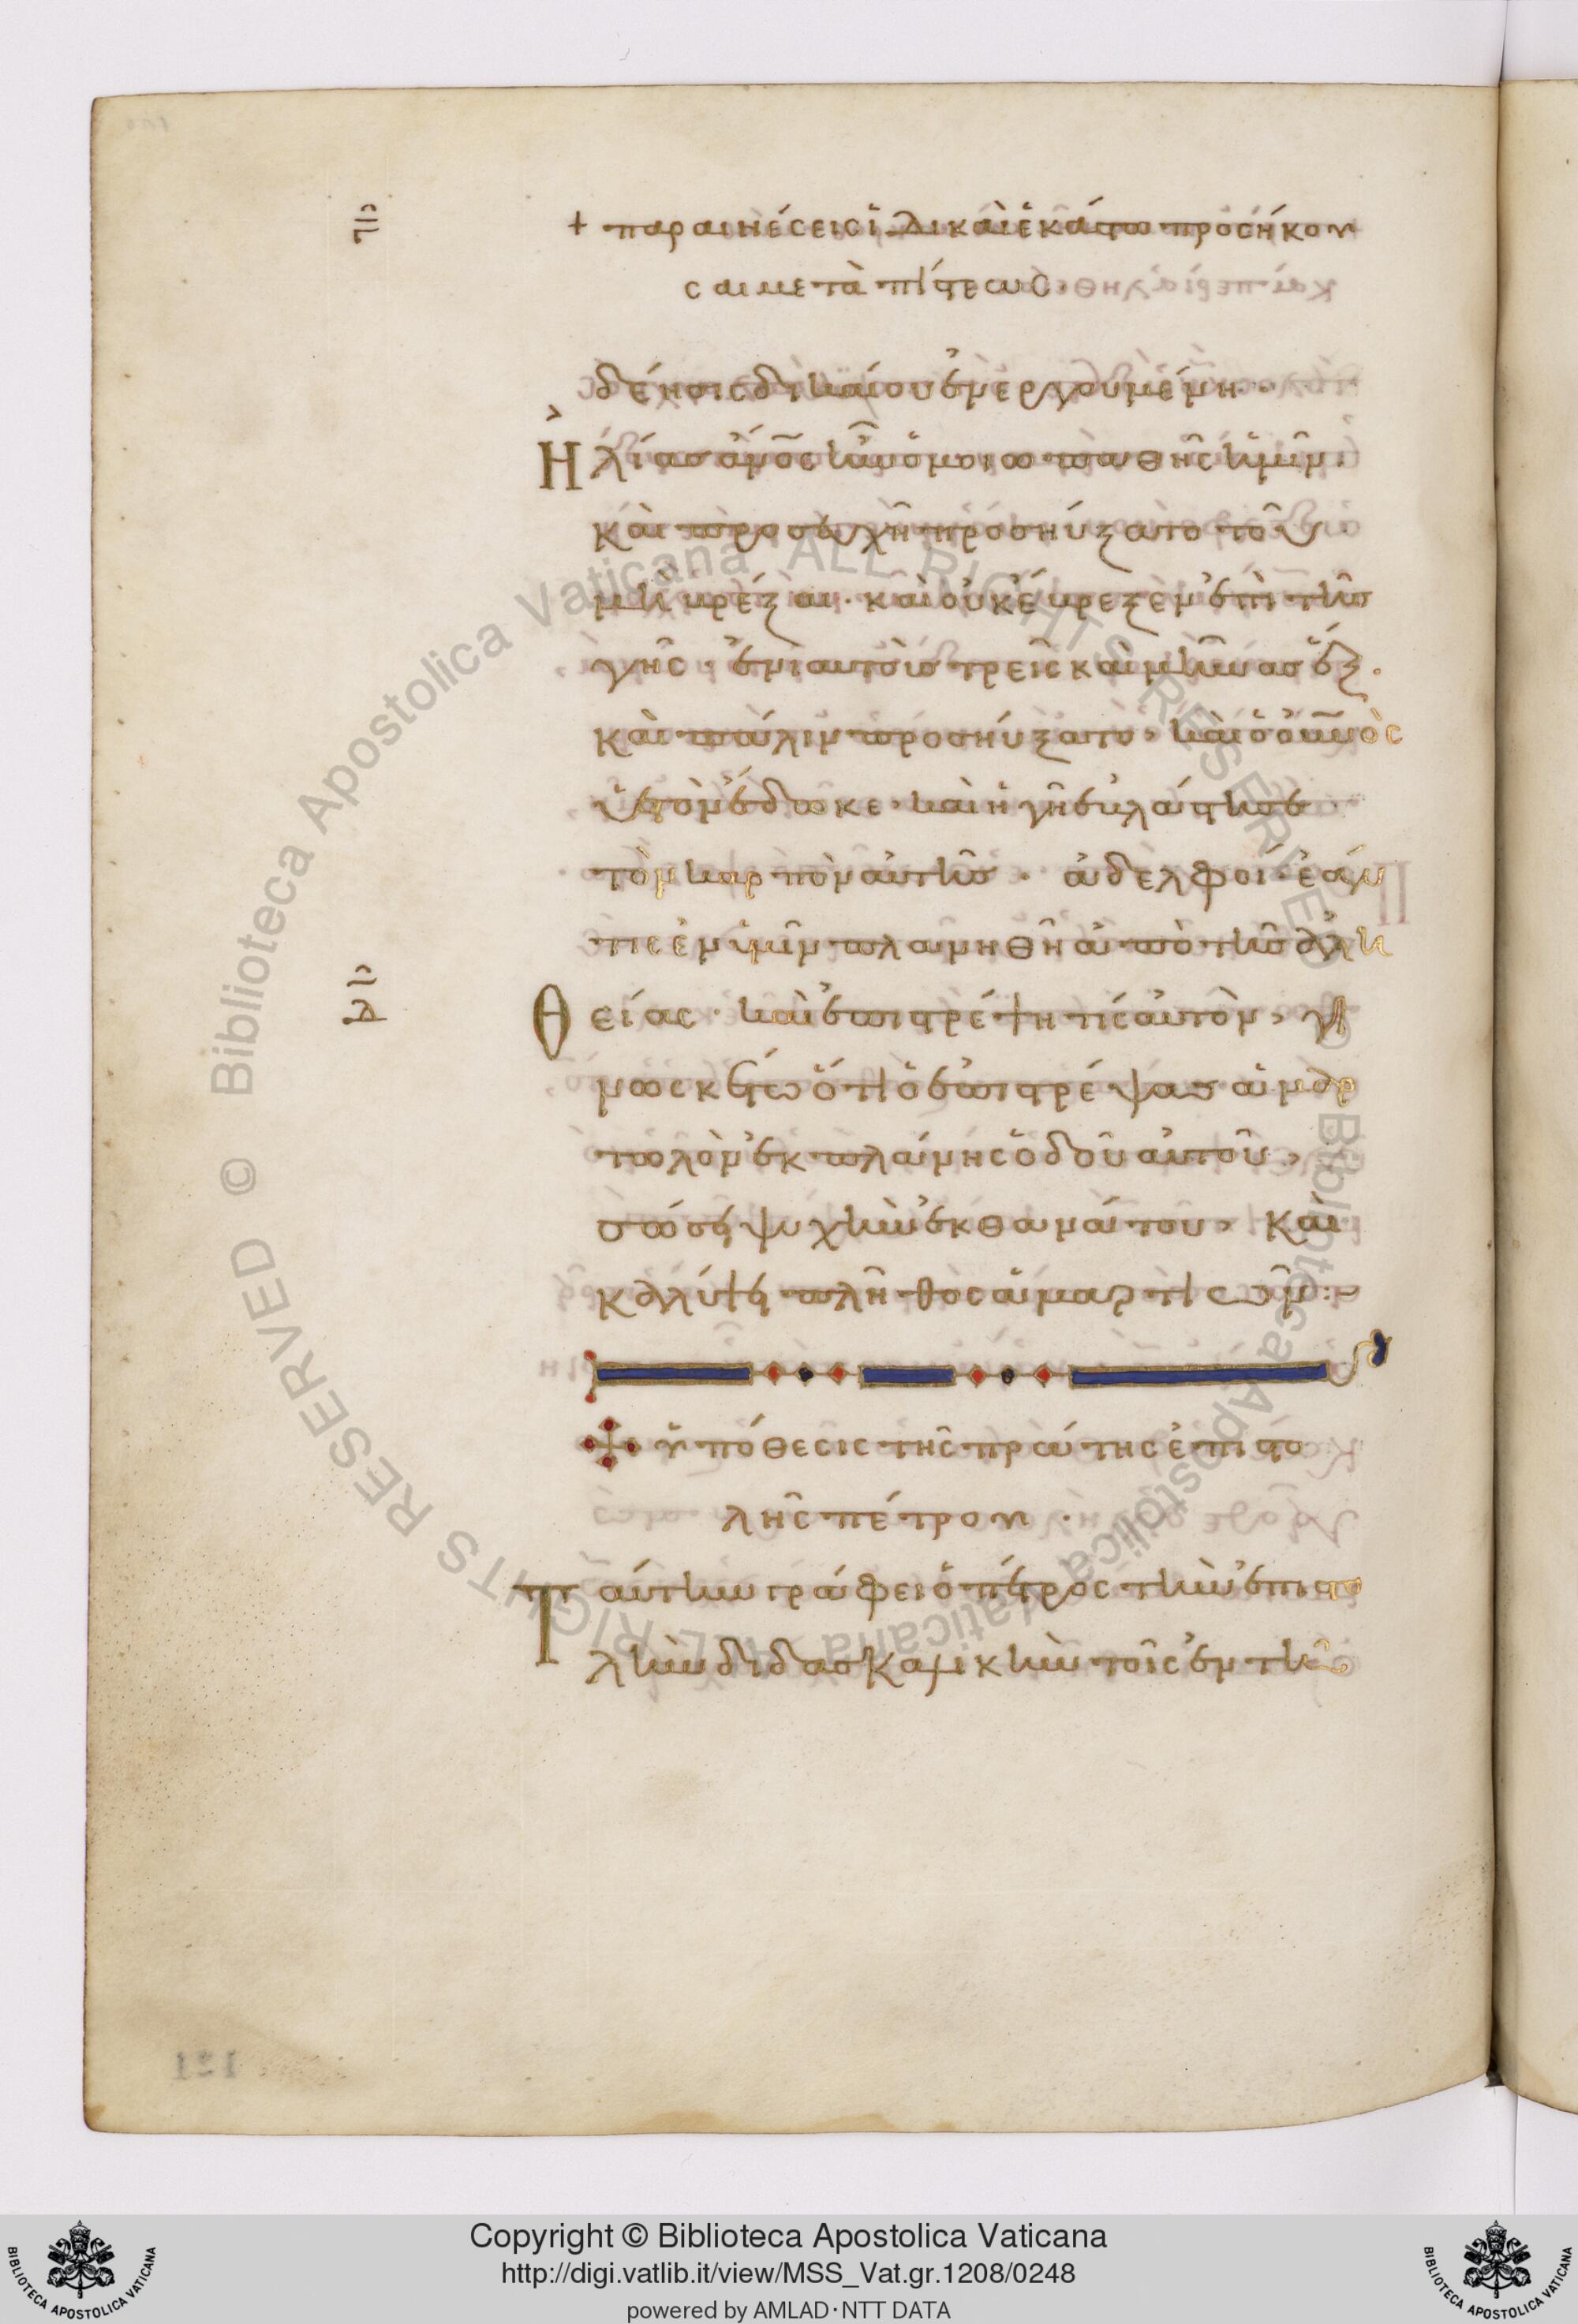 + παραινέσεις ἰδικαὶ ἑκάστω προσήκου
σαι μετὰ πίστεως
δέησις δικαίου ἐνεργουμένη·
Ἠλίας ἄνος ἦν ὁμοιωπαθὴς ἡμῖν·
καὶ προσευχῆ προσηύξατο τοῦ
μὴ βρέξαι· καὶ οὐκ ἔβρεξεν ἐπὶ τῆς
γῆς· ἐνιαυτοὺς τρεῖς καὶ μῆνας ἕξ·
καὶ πάλιν προσηύξατο, καὶ ὁ οὐνὸς
ὑετὸν ἔδωκε· καὶ ἡ γῆ ἐβλάστησε
τὸν καρπὸν αὐτῆς· ἀδελφοί· ἐάν
τις ἐν ὑμῖν πλανηθῆ ἀπὸ τῆς ἀλη
θείας· καὶ ἐπιστρέψη τις αὐτὸν, γι
νωσκέτω ὅτι ὁ ἐπιστρέψας ἁμαρ
τωλὸν ἐκ πλάνης ὁδοῦ αὐτοῦ,
σώσει ψυχὴν ἐκ θανάτου, καὶ
καλύψει πλῆθος ἁμαρτιῶν:~
ὑπόθεσις τῆς πρώτης ἐπιστο
λῆς πέτρου·
Ταύτην γράφει ὁ πέτρος τὴν ἐπιστο
λὴν διδασκαλικὴν τοῖς ἐν τῆ
Copyright © Biblioteca Apostolica Vaticana
http://digi.vatlib.it/view/MSS_Vat.gr.1208/0248
powered by AMLAD·NTT DATA